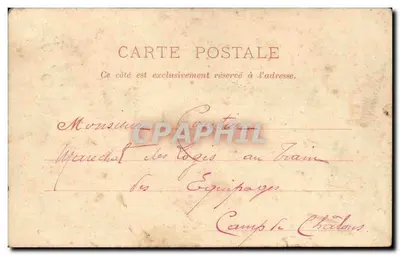 CARTE POSTALE
Ce côté est exclusivement réservé à l'adresse.
Monsieur
CPArama.com
Marechal des Logis au Train
des Equipages
Camp de Châlons